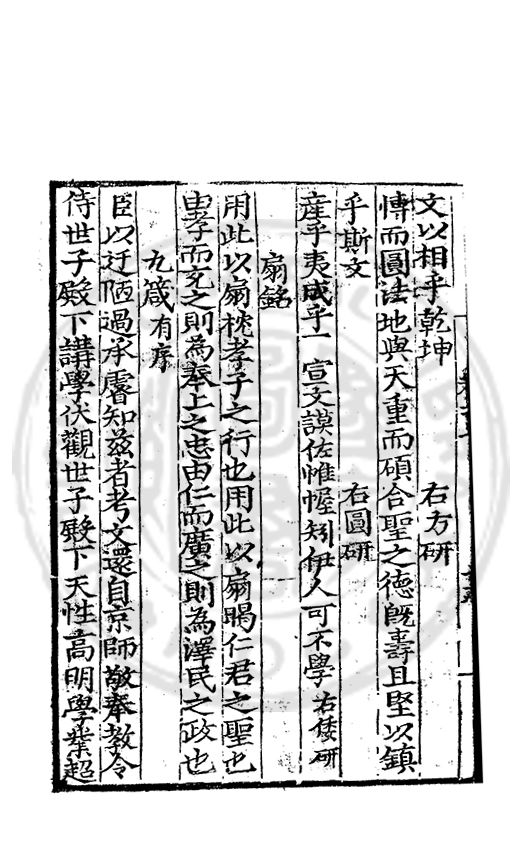 文以相乎乾坤　右方研
慱而圓法地與天重而碩合聖之德旣壽且堅以鎮
乎斯文　右圓研
産乎夷咸乎一　宣文謨佐帷幄矧伊人可不學　右倭研
扇銘
用此以扇枕孝子之行也用此以扇暍仁君之聖也
由孝而充之則為奉上之忠由仁而廣之則為澤民之政也
九箴有序
臣以迂陋過承睿知兹者考文還自京師敬奉教令
侍世子殿下講學伏觀世子殿下天性高明學業超